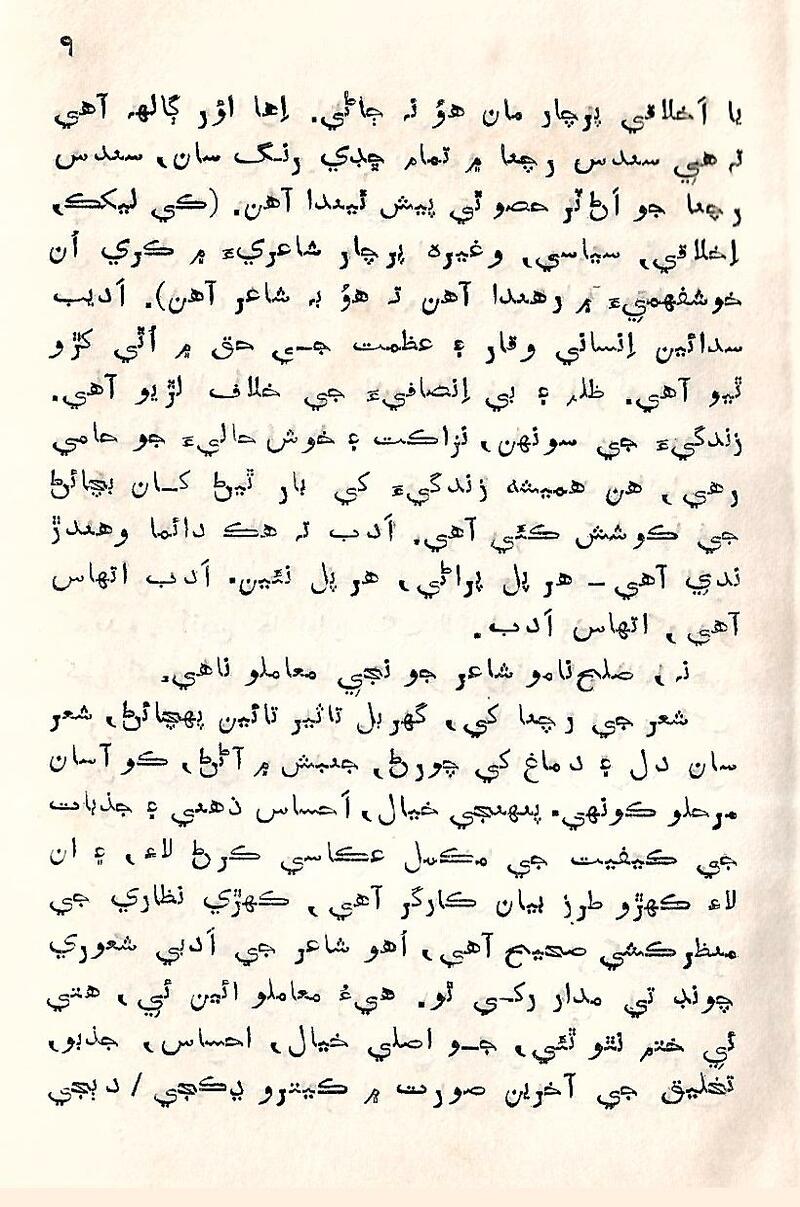 ٩
يا اَخلاقي پرچار مان هوُ نہ ڄاڻي. اِها اؤر ڳالھ آهي
تہ هي سندس رچنا ۾ تمام ڇدي رنگ سان، سندس
رچنا جو اَڻ ٽر حصو ٿي پيش ٿيندا آهن. (کي ليکڪ،
اِخلاقي، سياسي، وغيره پرچار شاعريءَ ۾ ڪري اُن
خوشفهميءَ ۾ رهندا آهن تہ هوُ بہ شاعر آهن). اَديب
سدائين اِنساني وقار ۽ عظمت جي حق ۾ اُٿي کڙو
ٿيو آهي. ظلم ۽ بي اِنصافيءَ جي خلاف لڙيو آهي.
زندگيءَ جي سونهن، نزاکت ۽ خوش حاليءَ جو حامي
رهي، هن هميشہ زندگيءَ کي بار ٿيڻ کان بچائڻ
جي ڪوشش ڪئي آهي. اَدب تہ هڪ دائما وهندڙ
ندي آهي – هر پل پراڻي، هر پل نئين. اَدب اتهاس
آهي، اتهاس اَدب.
نہ، صلح نامو شاعر جو نجي معاملو ناهي.
شعر جي رچنا کي، گهربل تاثير تائين پهچائڻ، شعر
سان دل ۽ دماغ کي چورڻ، جنبش ۾ آڻڻ، ڪو آسان
مرحلو ڪونهي. پنهنجي خيال، اَحساس ذهني ۽ جذبات
جي ڪيفيت جي مڪمل عڪاسي ڪرڻ لاءِ، ۽ ان
لاءِ ڪهڙو طرز بيان ڪارگر آهي، ڪهڙي نظاري جي
منظرڪشي صحيح آهي، اُهو شاعر جي اَدبي شعوري
چونڊ تي مدار رکي ٿو. هيءُ معاملو ائين ئي، هتي
ئي ختم نٿو ٿئي، جو اصلي خيال، احساس، جذبو،
تخليق جي آخرين صورت ۾ ڪيترو ڍڪجي / دٻجي